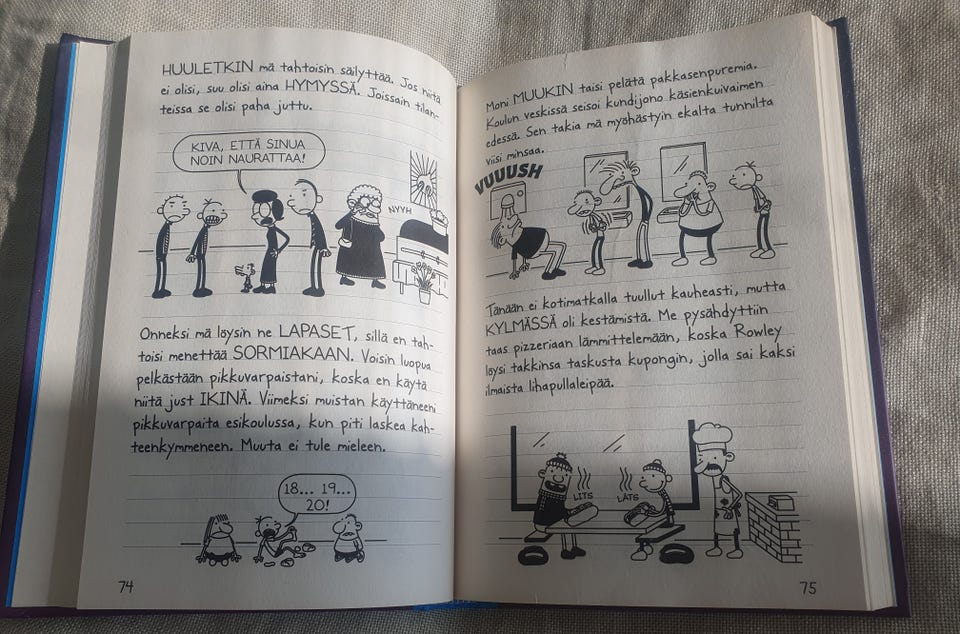 HUULETKIN mä tahtoisin säilyttää. Jos niitä
ei olisi, suu olisi aina HYMYSSÄ. Joissain tilan-
teissa se olisi paha juttu.
KIVA, ETTÄ SINUA
NOIN NAURATTAA!
NYYH
Onneksi mä löysin ne LAPASET, sillä en tah-
toisi menettää SORMIAKAAN. Voisin luopua
pelkästään pikkuvarpaistani, koska en käytä
niitä just IKINÄ. Viimeksi muistan käyttäneeni
pikkuvarpaita esikoulussa, kun piti laskea kah-
teenkymmeneen. Muuta ei tule mieleen.
18... 19...
20!
74
Moni MUUKIN taisi pelätä pakkasenpuremia.
Koulun veskissä seisoi kundijono käsienkuivaimen
edessä. Sen takia mä myöhästyin ekalta tunnilta
viisi minsaa.
VUUUSH
Tänään ei kotimatkalla tuullut kauheasti, mutta
KYLMÄSSÄ oli kestämistä. Me pysähdyttiin
taas pizzeriaan lämmittelemään, koska Rowley
löysi takkinsa taskusta kupongin, jolla sai kaksi
ilmaista lihapullaleipää.
LITS
LÄTS
75